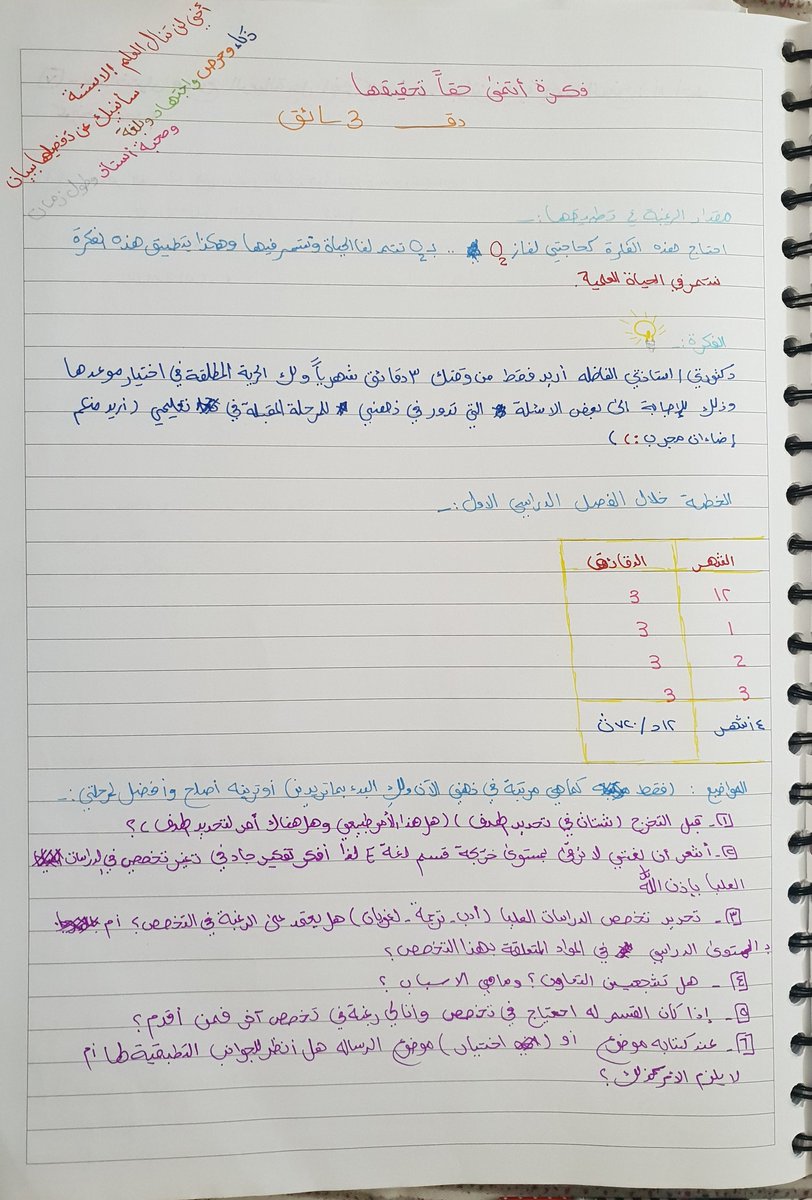 أخي لن تنال العلم إلا بستة
سأنبيك عن تفصيلها ببيان
ذكاء وحرص واجتهاد وبلغة
وصحبة أستاذ وطول زمان
فكرة أتمنى حقاً تحقيقها
دقـ 3 ـائق
مقدار الرغبة في تطبيقها :ـ
احتاج هذه الفكرة كحاجتي لغاز O2 .. بـ O2 تتم لنا الحياة ونستمر فيها وهكذا بتطبيق هذه الفكرة
نستمر في الحياة العلمية.
الفكرة :ـ
دكتورتي / استاذتي الفاضله أريد فقط من وقتك ٣ دقائق شهرياً ولك الحرية المطلقة في اختيار موعدها
وذلك للإجابة الى بعض الاسئلة التي تدور في ذهني للمرحلة المقبلة في تعليمي (أريد منكم
إضاءات مجرب :) )
الخطة خلال الفصل الدراسي الاول :ـ
الشهر الدقائق
١٢ 3
1 3
2 3
3 3
٤ أشهر ١٢د / ٧٢٠ث
المواضيع : (فقط كما هي مرتبة في ذهني الآن ولك البدء بما تريدين أو ترينه أصلح وأفضل لمرحلتي :ـ
١- قبل التخرج (شتات في تحديد هدف) (هل هذا الأمر طبيعي وهل هناك أمر لتحديد هدف)؟
٢- أشعر أن لغتي لا ترقى بمستوى خريجة قسم لغة E لذا أفكر تفكير جاد في تغير تخصصي في الدراسات
العليا بإذن الله
٣- تحديد تخصص الدراسات العليا (أدب - ترجمة - لغويات) هل يعتمد على الرغبة في التخصص؟ أم
بـ المستوى الدراسي في المواد المتعلقة بهذا التخصص؟
٤- هل تشجعين التعاون؟ وماهي الاسباب؟
٥- إذا كان القسم له احتياج في تخصص وانا لي رغبة في تخصص آخر فمن أقدم؟
٦- عند كتابه موضوع أو (اختيار) موضوع الرساله هل أنظر للجوانب التطبيقية لها أم
لا يلزم الأمر كذلك؟